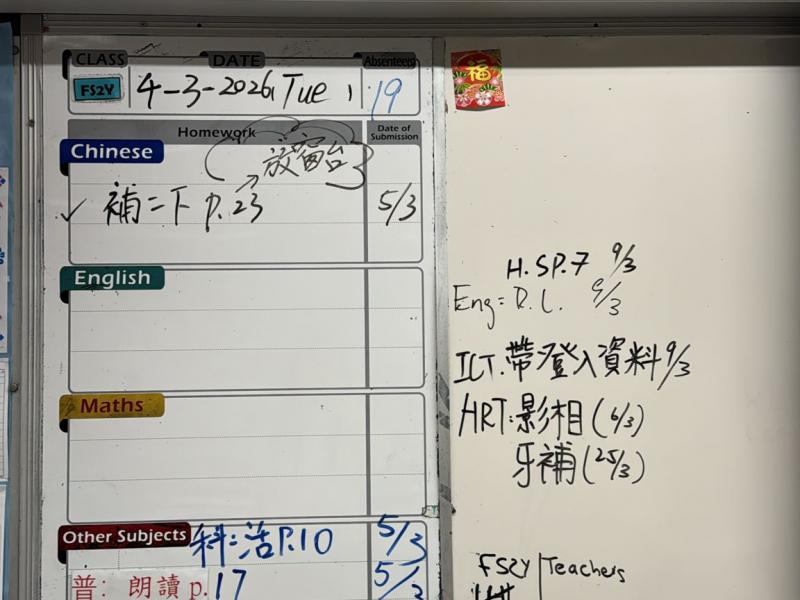 CLASS DATE Absentee(s)
FS2Y 4-3-2026, Tue 19
Homework Date of Submission
Chinese
放窗台
✓ 補二下 p.23 5/3
English
Maths
Other Subjects 科:活P.10 5/3
普: 朗讀 p.17 5/3
福
H.SP.7 9/3
Eng: D.L. 9/3
ICT:帶登入資料 9/3
HRT:影相(6/3)
牙補(25/3)
FS2Y Teachers